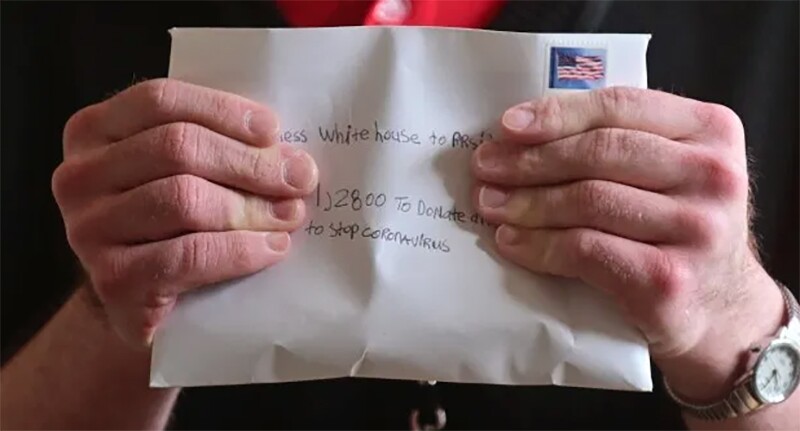 White house to
1,2800 To Donate
to stop CORONAVIRUS